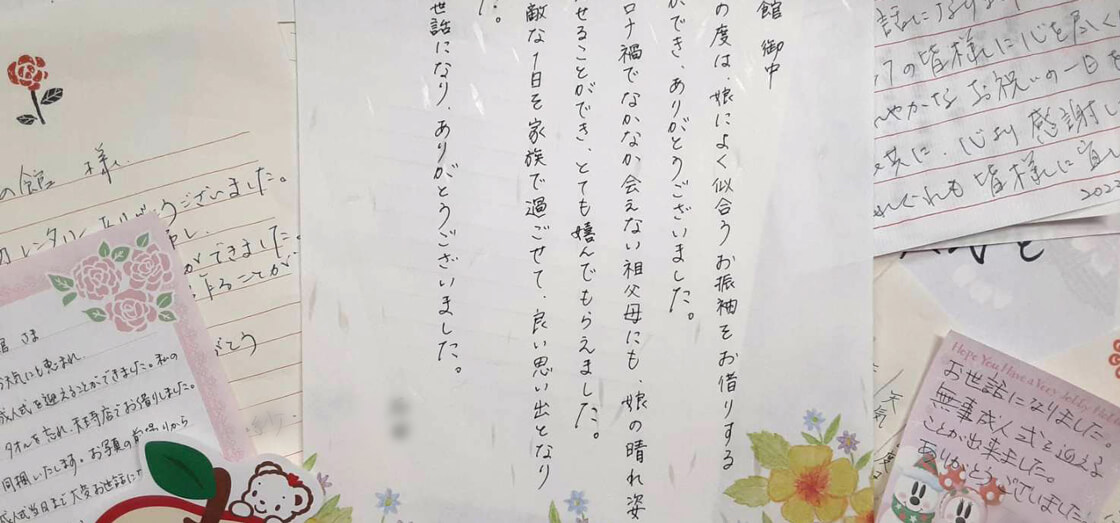 館 御中
の度は、娘によく似合うお振袖をお借りする
ができ、ありがとうございました。
ロナ禍でなかなか会えない祖父母にも、娘の晴れ姿
せることができ、とても嬉んでもらえました。
敵な1日を家族で過ごせて、良い思い出となり
た。
世話になり、ありがとうございました。
の館 様
ありがとうございました。
ができました。
ことが
がとう
館 さま
お天気にも恵まれ、
成人式を迎えることができました。私の
タオルを忘れ、
店でお借りしました。
同梱いたします。お写真の前撮りから
成人式当日まで大変お世話に
の皆様に心を尽く
やかなお祝いの一日を
共に、心より感謝し
皆様に宜し
Hope You Have a
お世話になりました。
無事成人式を迎える
ことが出来ました。
ありがとうございました。
天気